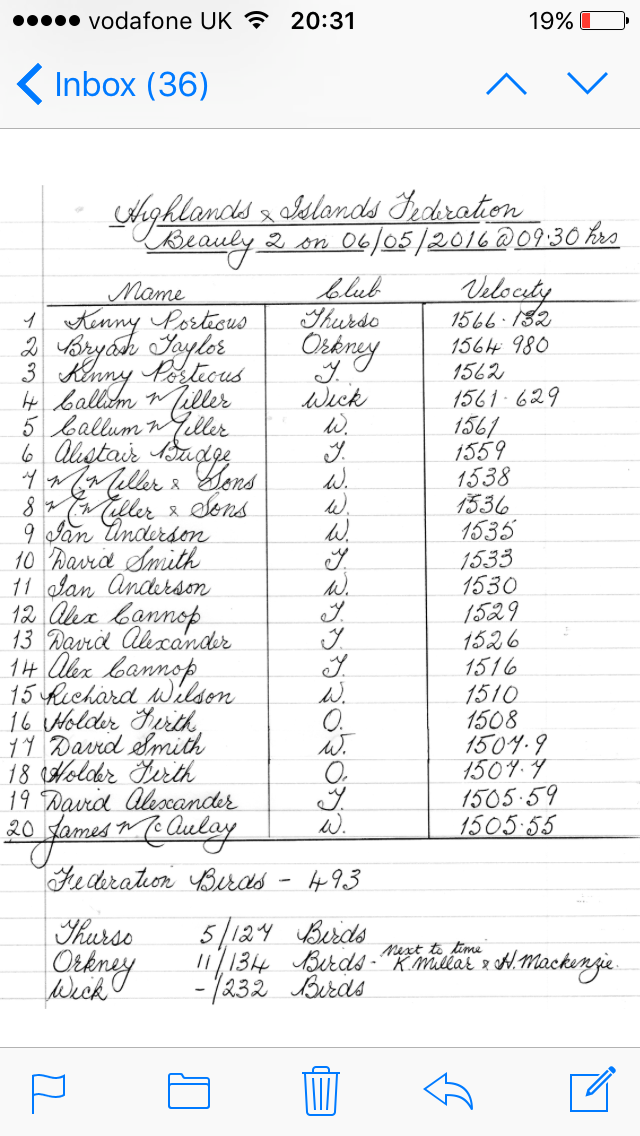 vodafone UK 20:31 19%
Inbox (36)
Highlands & Islands Federation
Beauly 2 on 06/05/2016 @ 09.30 hrs
Name Club Velocity
1 Kenny Porteous Thurso 1566.132
2 Bryan Taylor Orkney 1564.980
3 Kenny Porteous T. 1562
4 Callum Miller Wick 1561.629
5 Callum Miller W. 1561
6 Alistair Budge T. 1559
7 M Miller & Sons W. 1538
8 M Miller & Sons W. 1536
9 Ian Anderson W. 1535
10 David Smith T. 1533
11 Ian Anderson W. 1530
12 Alex Cannop T. 1529
13 David Alexander T. 1526
14 Alex Cannop T. 1516
15 Richard Wilson W. 1510
16 Holder Firth O. 1508
17 David Smith W. 1507.9
18 Holder Firth O. 1507.7
19 David Alexander T. 1505.59
20 James McAulay W. 1505.55
Federation Birds - 493
Thurso 5/127 Birds
Orkney 11/134 Birds - next to time K. Millar & H. Mackenzie.
Wick -/232 Birds